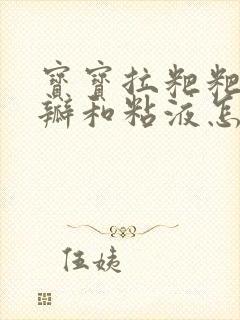 寶寶拉粑粑
瓣和粘液怎
伍姨